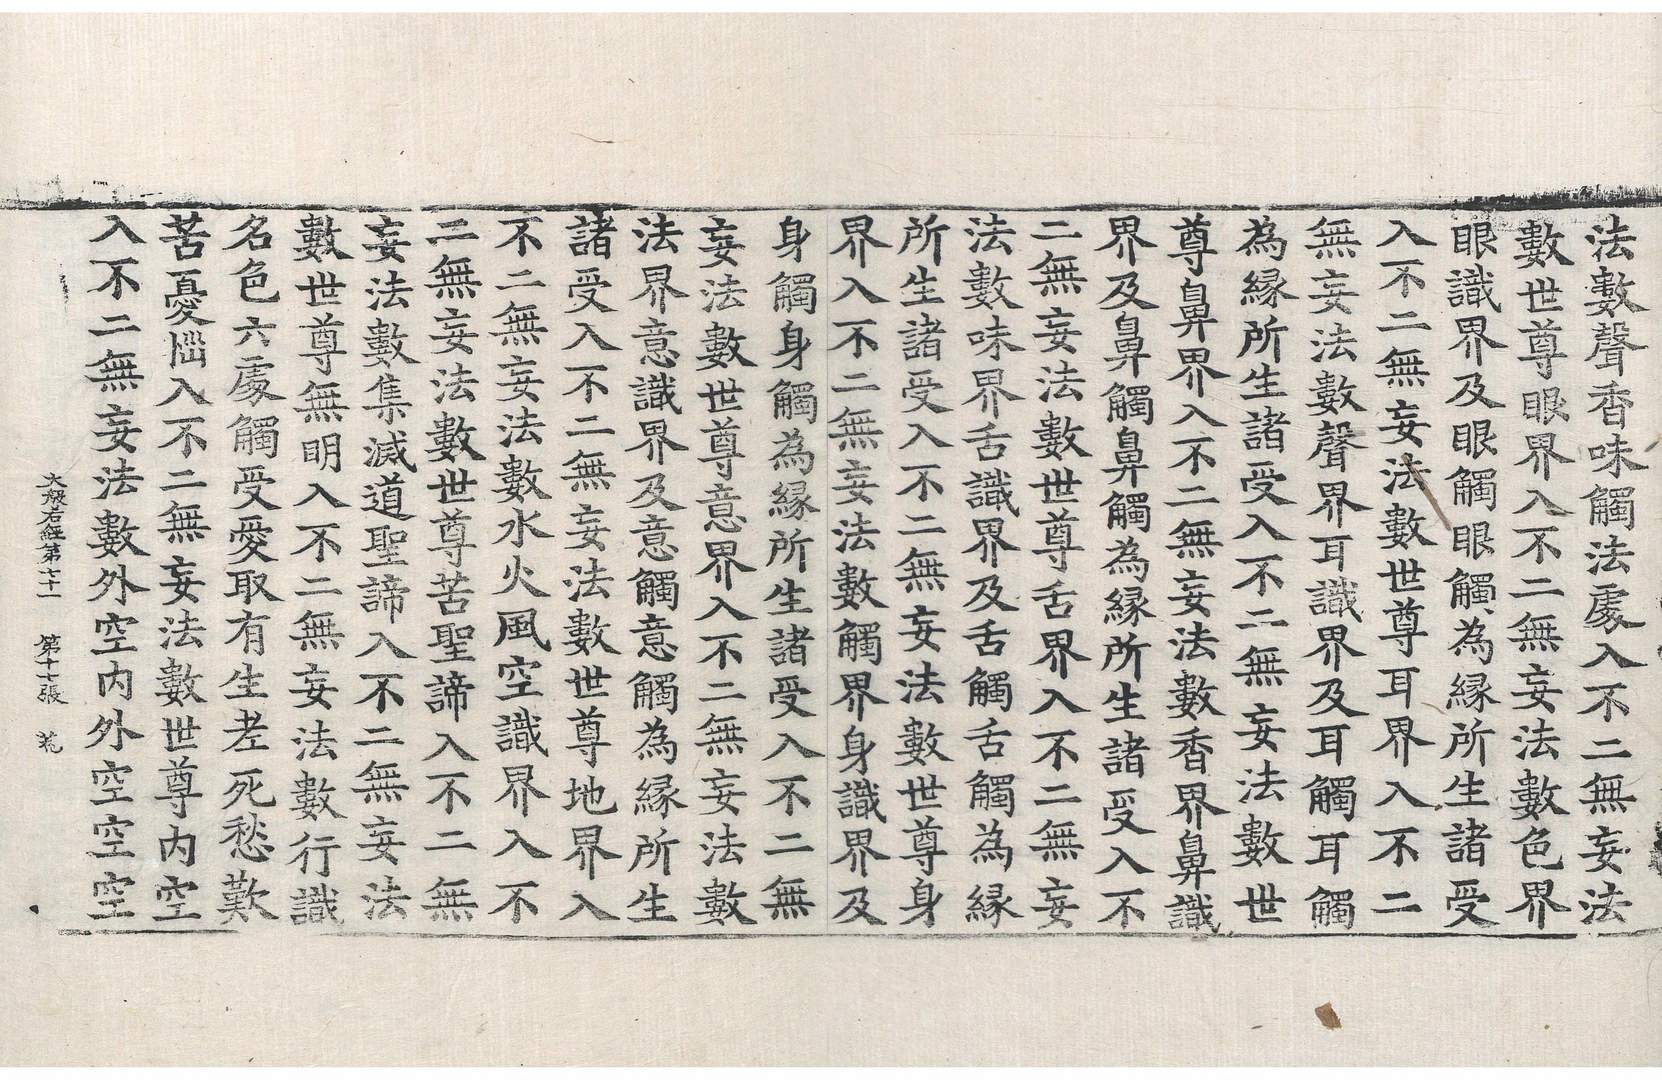 法數聲香味觸法處入不二無妄法
數世尊眼界入不二無妄法數色界
眼識界及眼觸眼觸為緣所生諸受
入不二無妄法數世尊耳界入不二
無妄法數聲界耳識界及耳觸耳觸
為緣所生諸受入不二無妄法數世
尊鼻界入不二無妄法數香界鼻識
界及鼻觸鼻觸為緣所生諸受入不
二無妄法數世尊舌界入不二無妄
法數味界舌識界及舌觸舌觸為緣
所生諸受入不二無妄法數世尊身
界入不二無妄法數觸界身識界及
身觸身觸為緣所生諸受入不二無
妄法數世尊意界入不二無妄法數
法界意識界及意觸意觸為緣所生
諸受入不二無妄法數世尊地界入
不二無妄法數水火風空識界入不
二無妄法數世尊苦聖諦入不二無
妄法數集滅道聖諦入不二無妄法
數世尊無明入不二無妄法數行識
名色六處觸受愛取有生老死愁歎
苦憂惱入不二無妄法數世尊內空
入不二無妄法數外空內外空空空
大般若經第七十一 第十七張 荒